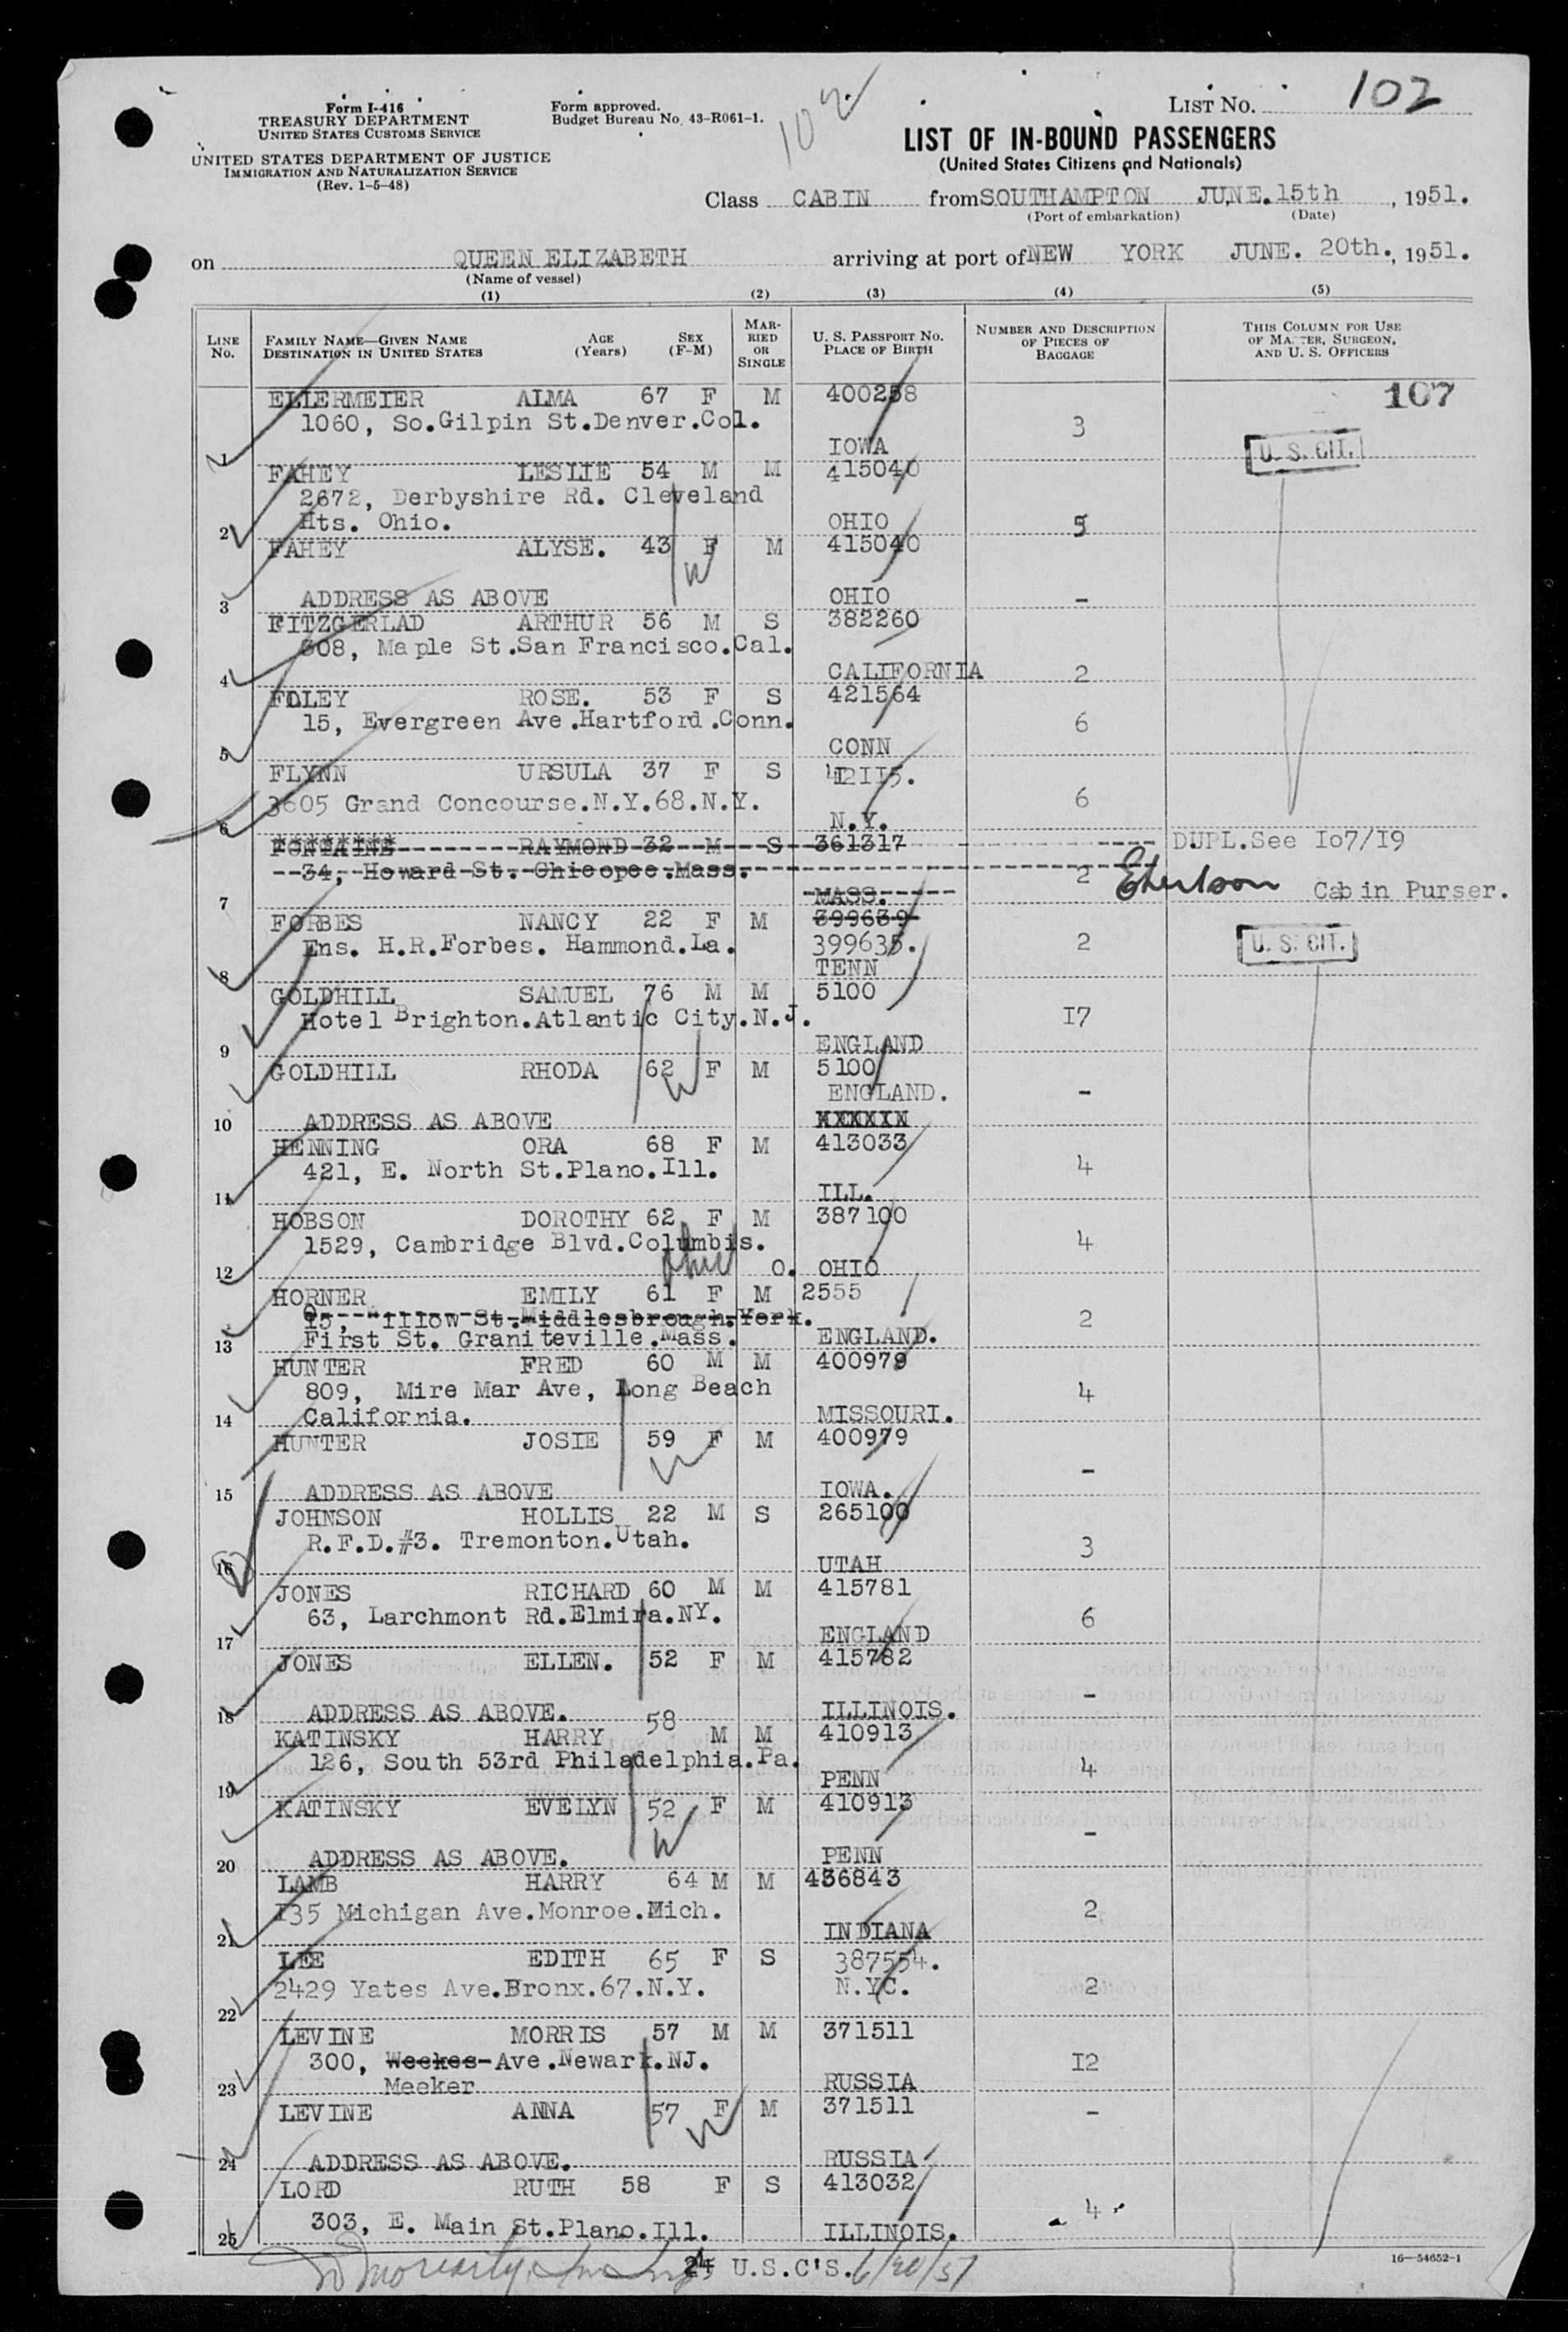 Form I-416
TREASURY DEPARTMENT
UNITED STATES CUSTOMS SERVICE
UNITED STATES DEPARTMENT OF JUSTICE
IMMIGRATION AND NATURALIZATION SERVICE
(Rev. 1-5-48)
Form approved.
Budget Bureau No. 43-R061-1.
102
LIST No. 102
LIST OF IN-BOUND PASSENGERS
(United States Citizens and Nationals)
Class CABIN from SOUTHAMPTON JUNE.15th, 1951.
(Port of embarkation) (Date)
on QUEEN ELIZABETH arriving at port of NEW YORK JUNE. 20th., 1951.
(Name of vessel)
(1) (2) (3) (4) (5)
LINE No. FAMILY NAME—GIVEN NAME DESTINATION IN UNITED STATES AGE (Years) SEX (F-M) MARRIED OR SINGLE U. S. PASSPORT No. PLACE OF BIRTH NUMBER AND DESCRIPTION OF PIECES OF BAGGAGE THIS COLUMN FOR USE OF MASTER, SURGEON, AND U. S. OFFICERS
107
ELLERMEIER ALMA 67 F M 400258
1060, So.Gilpin St.Denver.Col. 3
1 IOWA U. S. CIT.
FAHEY LESLIE 54 M M 415040
2672, Derbyshire Rd. Cleveland
2 Hts. Ohio. OHIO 5
FAHEY ALYSE. 43 F M 415040
3 ADDRESS AS ABOVE OHIO -
FITZGERLAD ARTHUR 56 M S 382260
308, Maple St.San Francisco.Cal.
4 CALIFORNIA 2
FOLEY ROSE. 53 F S 421564
15, Evergreen Ave.Hartford.Conn. 6
5 CONN
FLYNN URSULA 37 F S 42II5.
3605 Grand Concourse.N.Y.68.N.Y. 6
6 N.Y.
FONTAINE RAYMOND 32 M S 361317 DUPL.See Io7/I9
34, Howard St. Chicopee.Mass. 2 Cabin Purser.
7 MASS.
FORBES NANCY 22 F M 399639
Ens. H.R.Forbes. Hammond.La. 399635. 2 U. S. CIT.
8 TENN
GOLDHILL SAMUEL 76 M M 5100
Hotel Brighton.Atlantic City.N.J. I7
9 ENGLAND
GOLDHILL RHODA 62 F M 5100
ENGLAND. -
10 ADDRESS AS ABOVE
HENNING ORA 68 F M 413033
421, E. North St.Plano.Ill. 4
11 ILL.
HOBSON DOROTHY 62 F M 387100
1529, Cambridge Blvd.Columbis. 4
12 Ohio O. OHIO
HORNER EMILY 61 F M 2555
15, Willow St.Middlesbrough.York. 2
13 First St. Graniteville.Mass. ENGLAND.
HUNTER FRED 60 M M 400979
809, Mire Mar Ave, Long Beach 4
14 California. MISSOURI.
HUNTER JOSIE 59 F M 400979
-
15 ADDRESS AS ABOVE IOWA.
JOHNSON HOLLIS 22 M S 265100
R.F.D.#3. Tremonton.Utah. 3
16 UTAH
JONES RICHARD 60 M M 415781
63, Larchmont Rd.Elmira.NY. 6
17 ENGLAND
JONES ELLEN. 52 F M 415782
18 ADDRESS AS ABOVE. ILLINOIS. -
KATINSKY HARRY 58 M M 410913
126, South 53rd Philadelphia.Pa. 4
19 PENN
KATINSKY EVELYN 52 F M 410913
-
20 ADDRESS AS ABOVE. PENN
LAMB HARRY 64 M M 436843
I35 Michigan Ave.Monroe.Mich. 2
21 INDIANA
LEE EDITH 65 F S 387554.
2429 Yates Ave.Bronx.67.N.Y. N.YC. 2
22
LEVINE MORRIS 57 M M 371511
300, Weekes Ave.Newark.NJ. I2
23 Meeker RUSSIA
LEVINE ANNA 57 F M 371511
-
24 ADDRESS AS ABOVE. RUSSIA
LORD RUTH 58 F S 413032
303, E. Main St.Plano.Ill. 4
25 ILLINOIS.
24 U.S.C'S. 6/20/51
16—54652-1